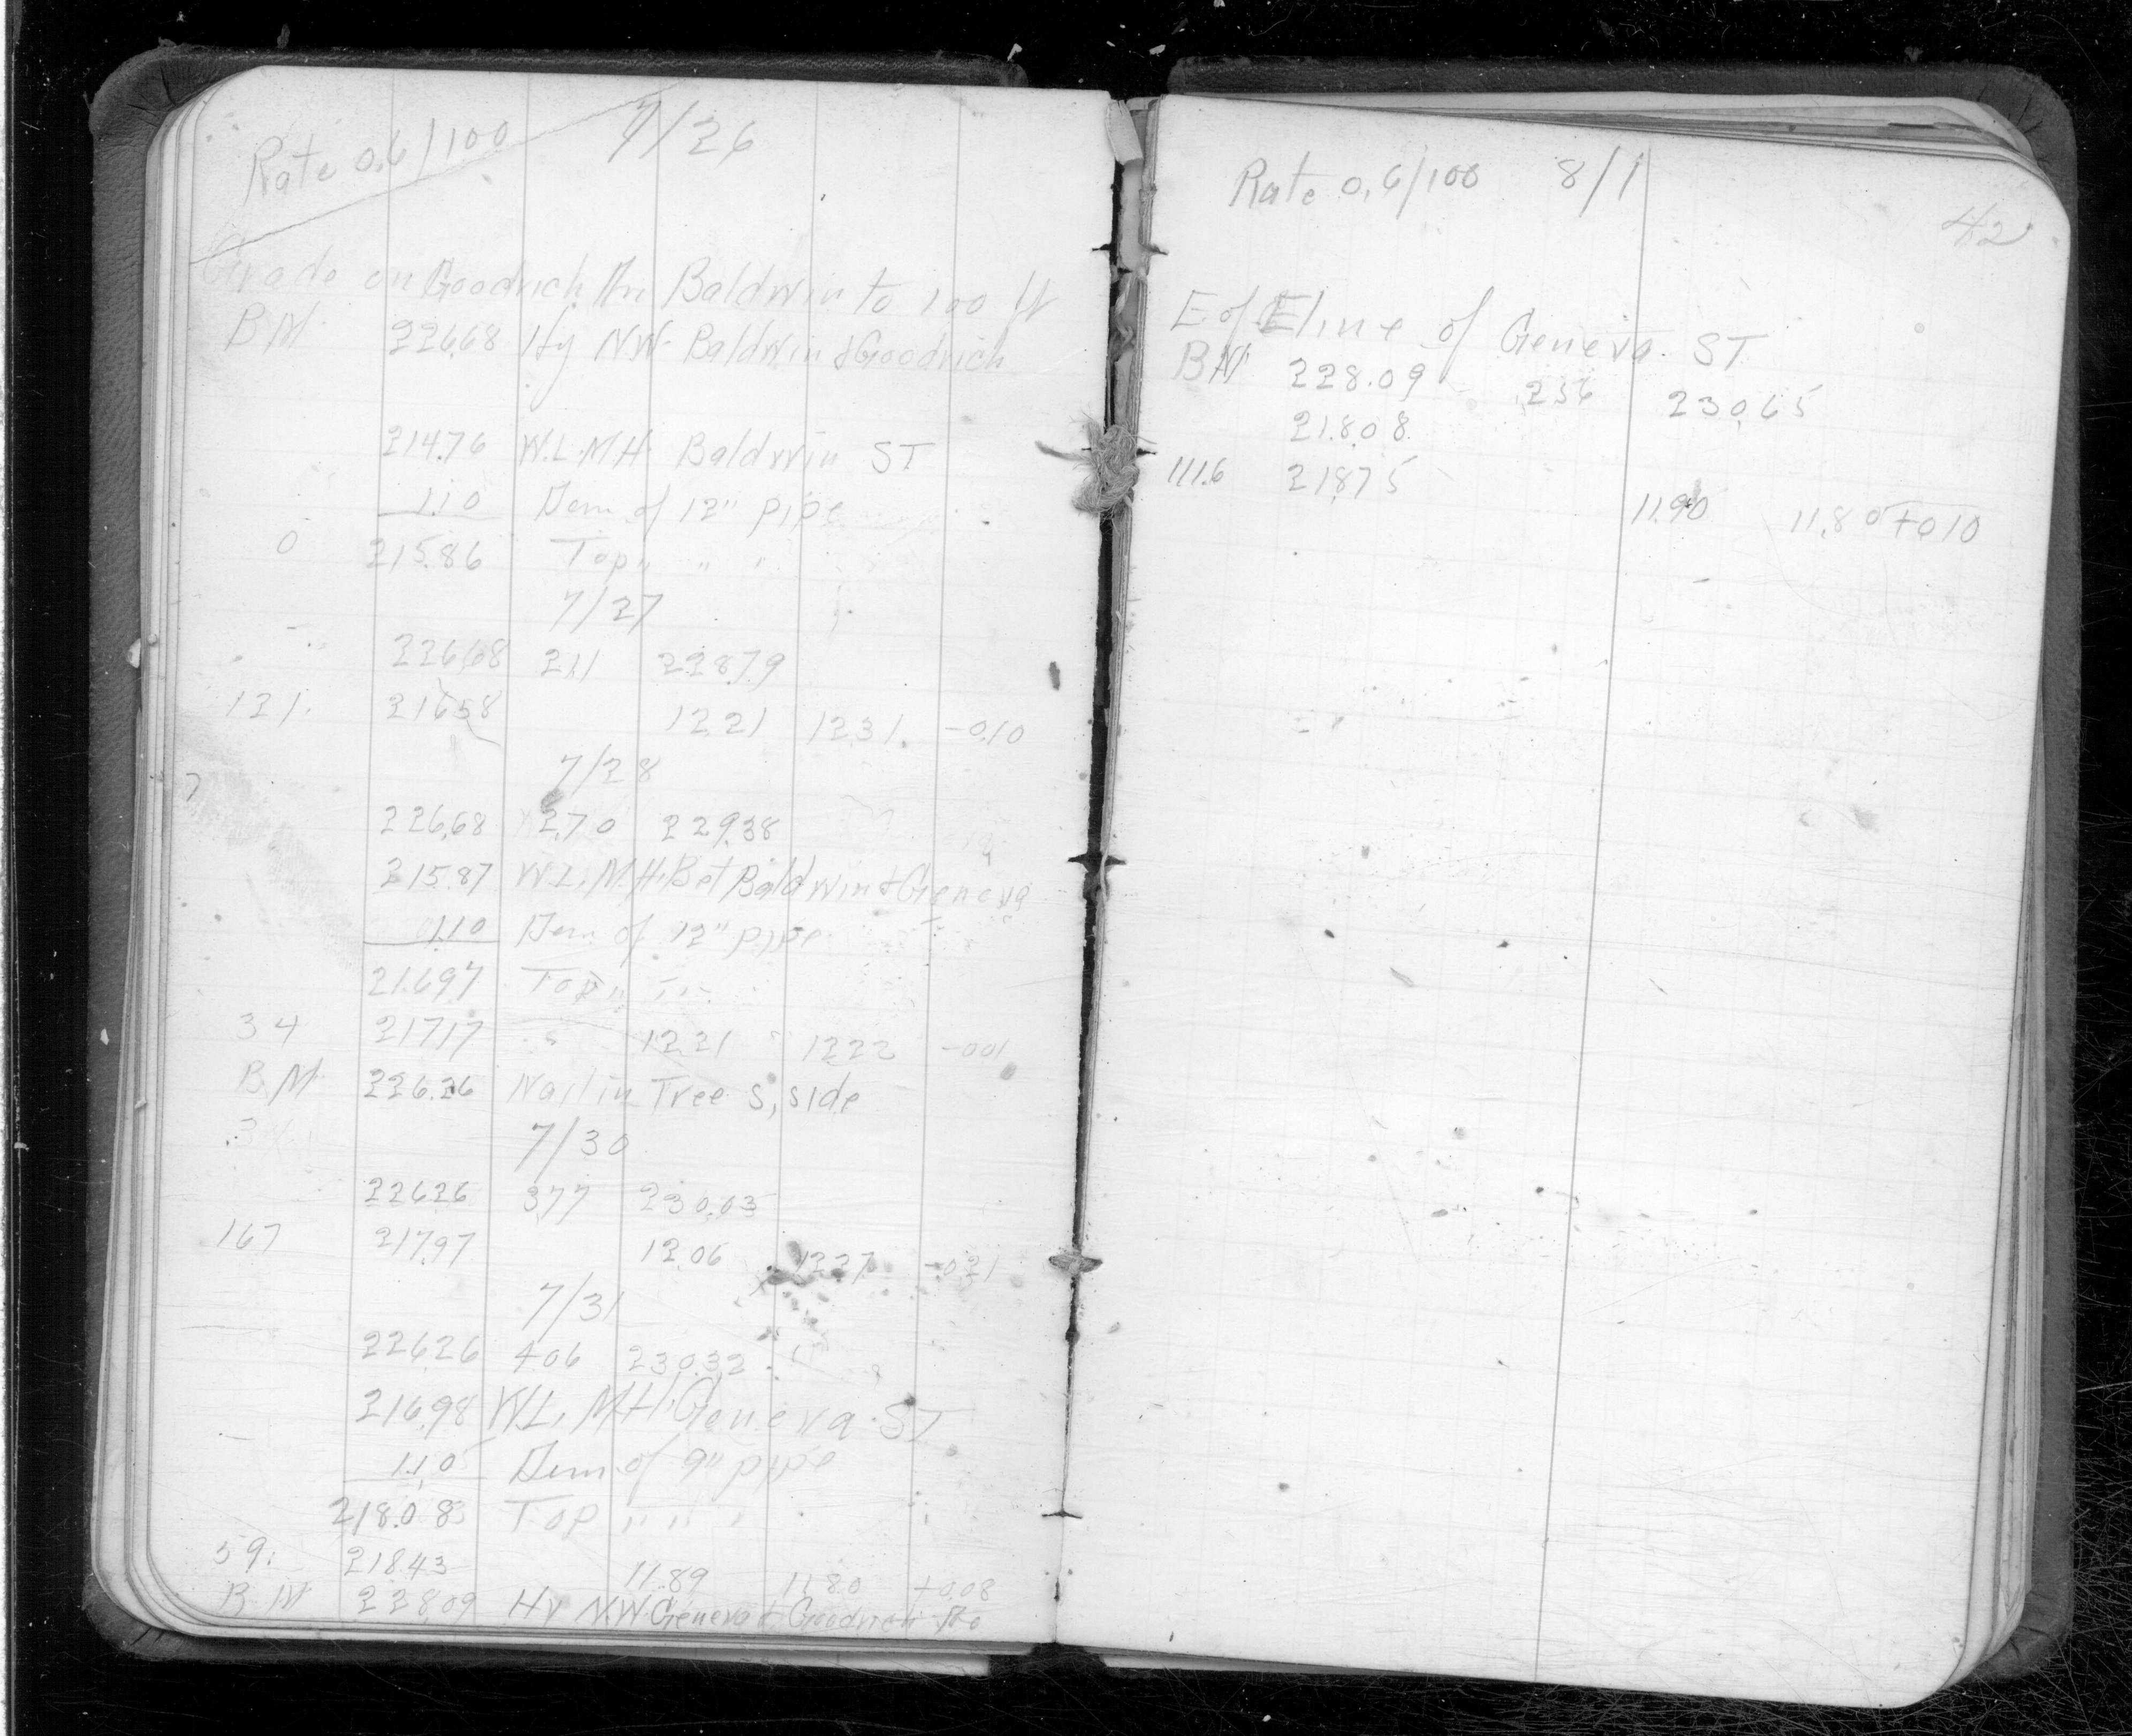 Rate 0.6/100 7/26
Grade on Goodrich Baldwin to 100
B M 226.68 Hy N.W. Baldwin & Goodrich
214.76 W.L.M.H. Baldwin ST
1.10 of 12" pipe
0 215.86 Top " " "
7/27
226.68 2.11 228.79
121. 216.58 12.21 12.31. -0.10
7/28
226.68 2.70 229.38
215.87 W.L. M.H. Bet Baldwin & Geneva
1.10 of 12" pipe
216.97 Top " " "
34 217.17 12.21 12.22 -001
B M 226.26 Nail in Tree S, side
7/30
226.26 3.77 230.03
167 217.97 12.06 12.27 -0.21
7/31
226.26 406 230.32
216.98 W.L. M.H. Geneva ST
1.10 of 9" pipe
218.08 Top " " "
59. 218.43 11.89 11.80 +0.08
B M 228.09 Hy N.W. Geneva & Goodrich
Rate 0.6/100 8/1
42
E of E line of Geneva ST
BM 228.09 256 230.65
218.08
111.6 218.75 11.90 11.80 +0.10